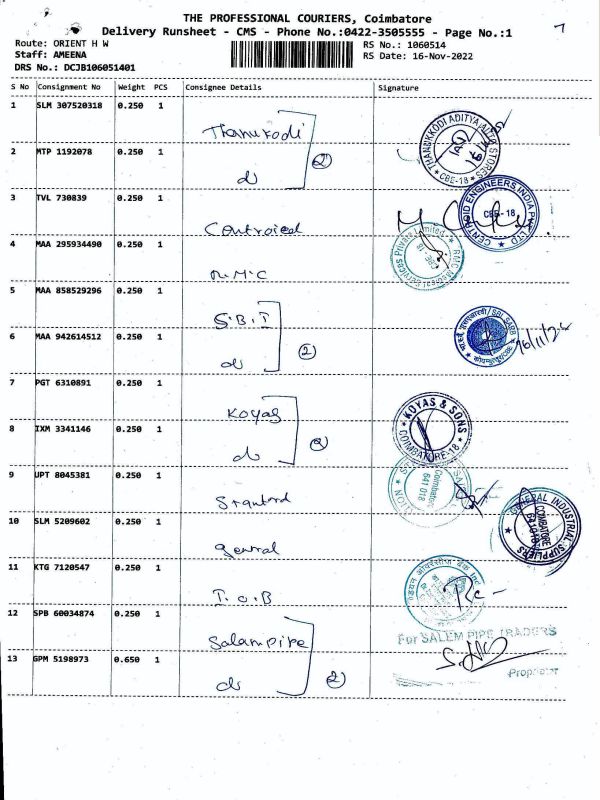 THE PROFESSIONAL COURIERS, Coimbatore
Delivery Runsheet - CMS - Phone No.:0422-3505555 - Page No.:1
7
Route: ORIENT H W
RS No.: 1060514
Staff: AMEENA
RS Date: 16-Nov-2022
DRS No.: DCJB106051401
S No Consignment No Weight PCS Consignee Details Signature
1 SLM 307520318 0.250 1 Thanukodi
THANDIKKODI ADITYA AUTO STORES
* CBE-18 *
2 MTP 1192078 0.250 1 do 2
3 TVL 730839 0.250 1
CENTROID ENGINEERS INDIA PVT LTD
CBE - 18
4 MAA 295934490 0.250 1 R.M.C
RMC Medical Services Private Limited
CBE - 18
5 MAA 858529296 0.250 1 S.B.I
SBI SARB
6 MAA 942614512 0.250 1 do 2
16/11/22
7 PGT 6310891 0.250 1 Koyas
KOYAS & SONS
COIMBATORE-18
8 IXM 3341146 0.250 1 do 2
9 UPT 8045381 0.250 1
Coimbatore
641 018
10 SLM 5209602 0.250 1 general
GENERAL INDUSTRIAL SUPPLIERS
COIMBATORE
641 018
11 KTG 7120547 0.250 1 I.O.B
12 SPB 60034874 0.250 1 Salam pipe
For SALEM PIPE TRADERS
13 GPM 5198973 0.650 1 do 2
Proprietor